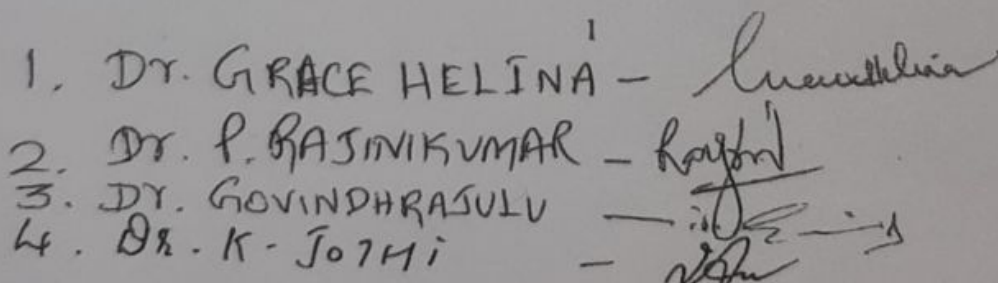 1. Dr. GRACE HELINA -
2. Dr. P. RAJINIKUMAR -
3. Dr. GOVINDHRAJULU -
4. Dr. K. JOTHi -